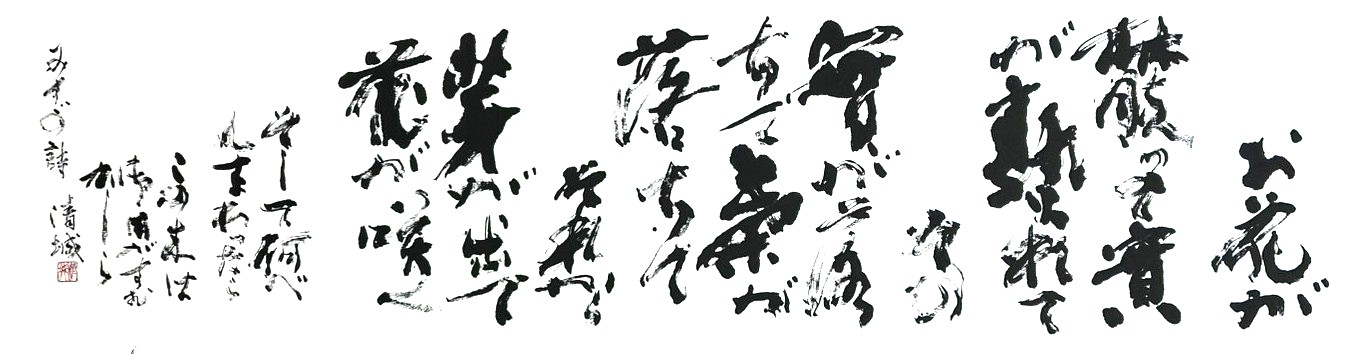 お花が
散って實
が熟れて
その
實が落
ちて葉が
落ちて
それから
芽が出て
花が咲く
そうして何べ
んまわったら
この木は
御用がすむ
かしら
みすゞの詩 清城